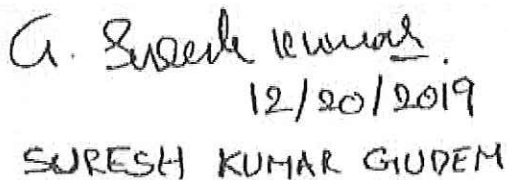 G. Suresh Kumar.
12/20/2019
SURESH KUMAR GUDEM